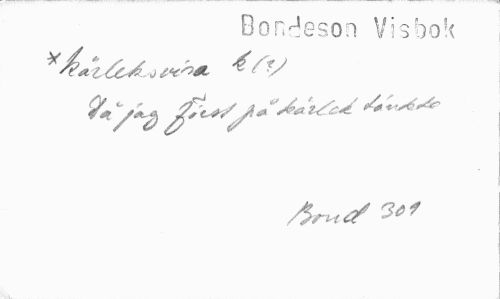 Bondeson Visbok
*kärleksvisa k (?)
Då jag först på kärlek tänkte
Bond 309